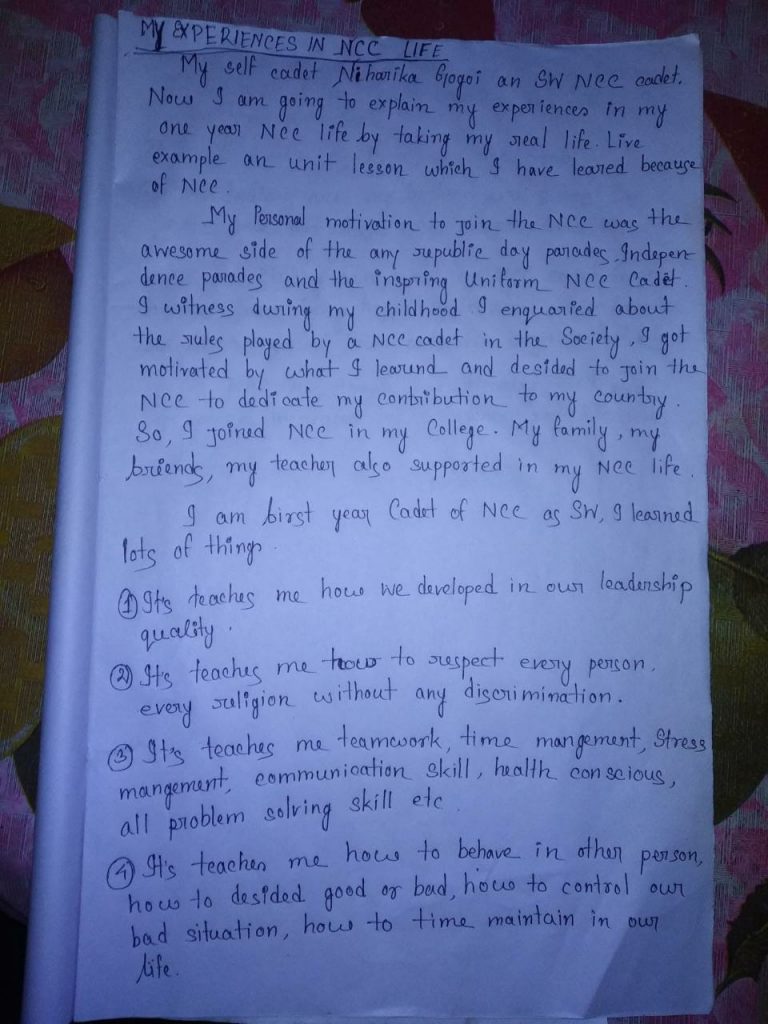 MY EXPERIENCES IN NCC LIFE
My self cadet Niharika Gogoi an SW NCC cadet.
Now I am going to explain my experiences in my
one year NCC life by taking my real life. Live
example an unit lesson which I have leared because
of NCC.
My Personal motivation to join the NCC was the
awesome side of the any republic day parades, Indepen-
dence parades and the inspring Uniform NCC Cadet.
I witness during my childhood I enquaried about
the rules played by a NCC cadet in the Society, I got
motivated by what I learund and desided to join the
NCC to dedicate my contribution to my country.
So, I joined NCC in my College. My family, my
friends, my teacher also supported in my NCC life.
I am first year Cadet of NCC as SW, I learned
lots of things.
① It's teaches me how we developed in our leadership
quality.
② It's teaches me how to respect every person,
every religion without any discrimination.
③ It's teaches me teamwork, time mangement, Stress
mangement, communication skill, health conscious,
all problem solving skill etc.
④ It's teaches me how to behave in other person,
how to desided good or bad, how to control our
bad situation, how to time maintain in our
life.